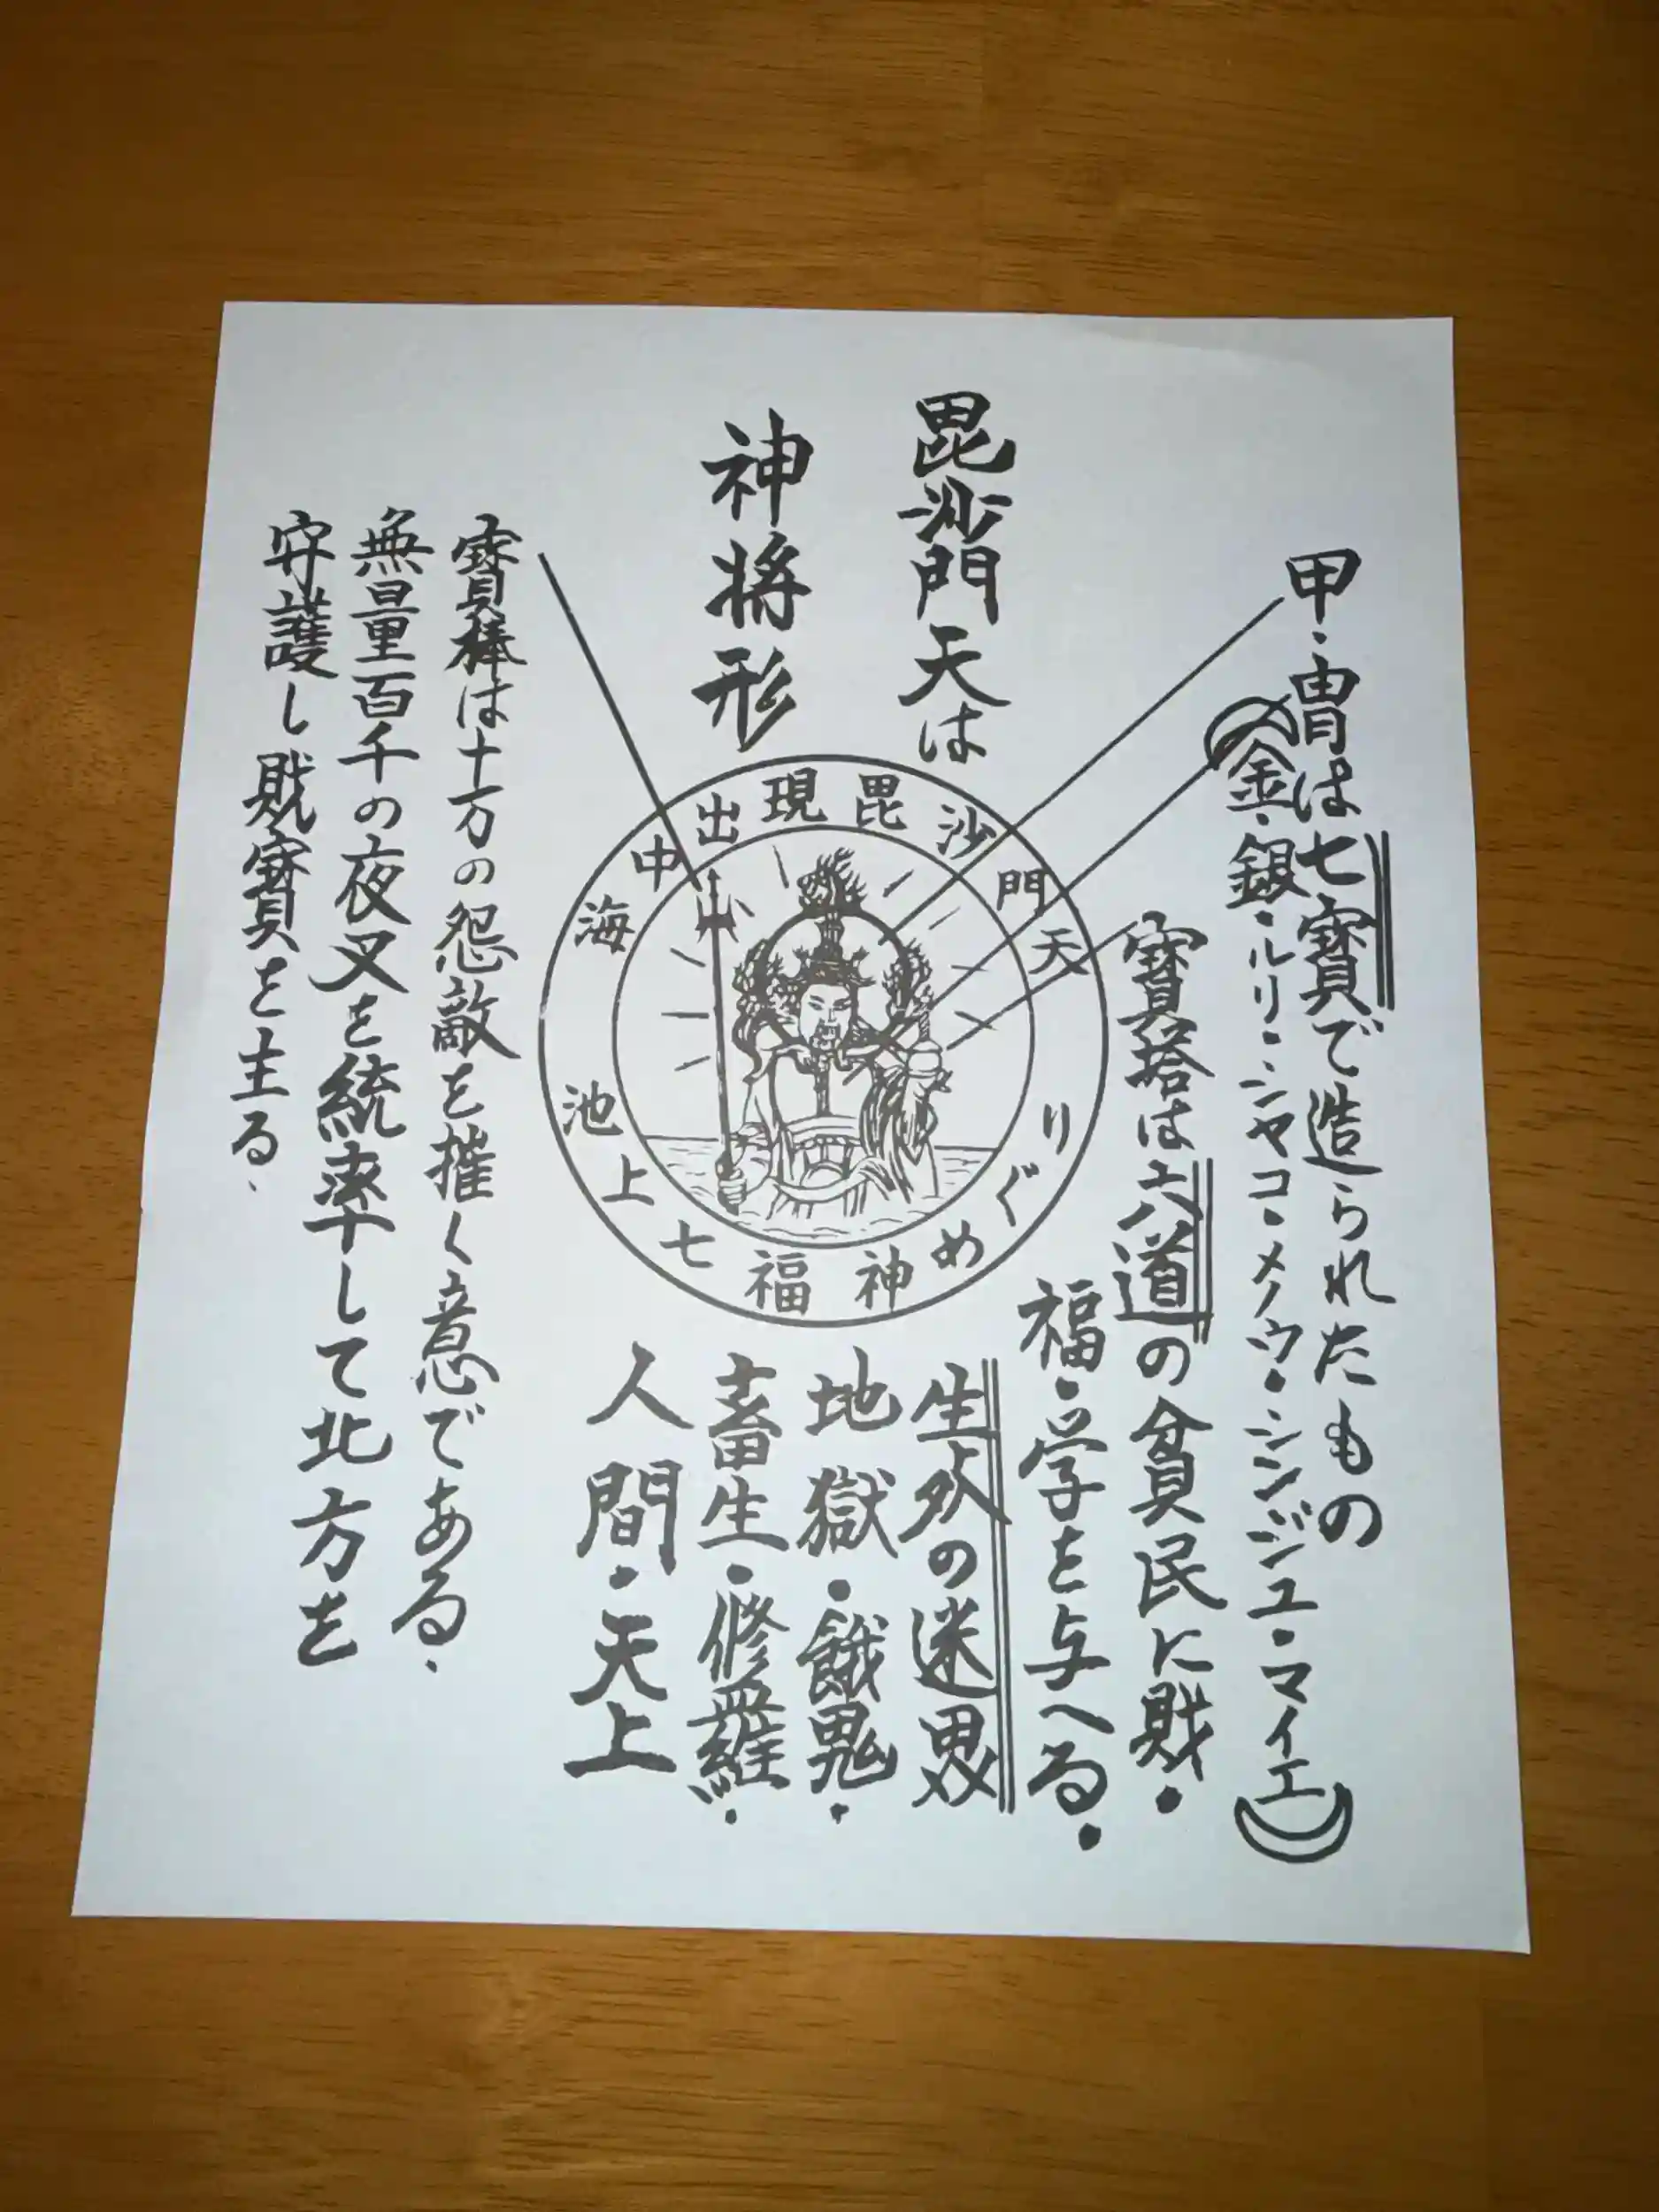 甲・冑は七寳で造られたもの
(金・銀・ルリ・シヤコ・メノウ・シンジユ・マイエ)
寳塔は六道の貧民に財・
福・学を与へる・
毘沙門天は
神将形
海中出現毘沙門天
池上七福神めぐり
生死の迷界
地獄・餓鬼・
畜生・修羅・
人間・天上
寳棒は十万の怨敵を摧く意である、
無量百千の夜叉を統率して北方を
守護し財寳を主る、